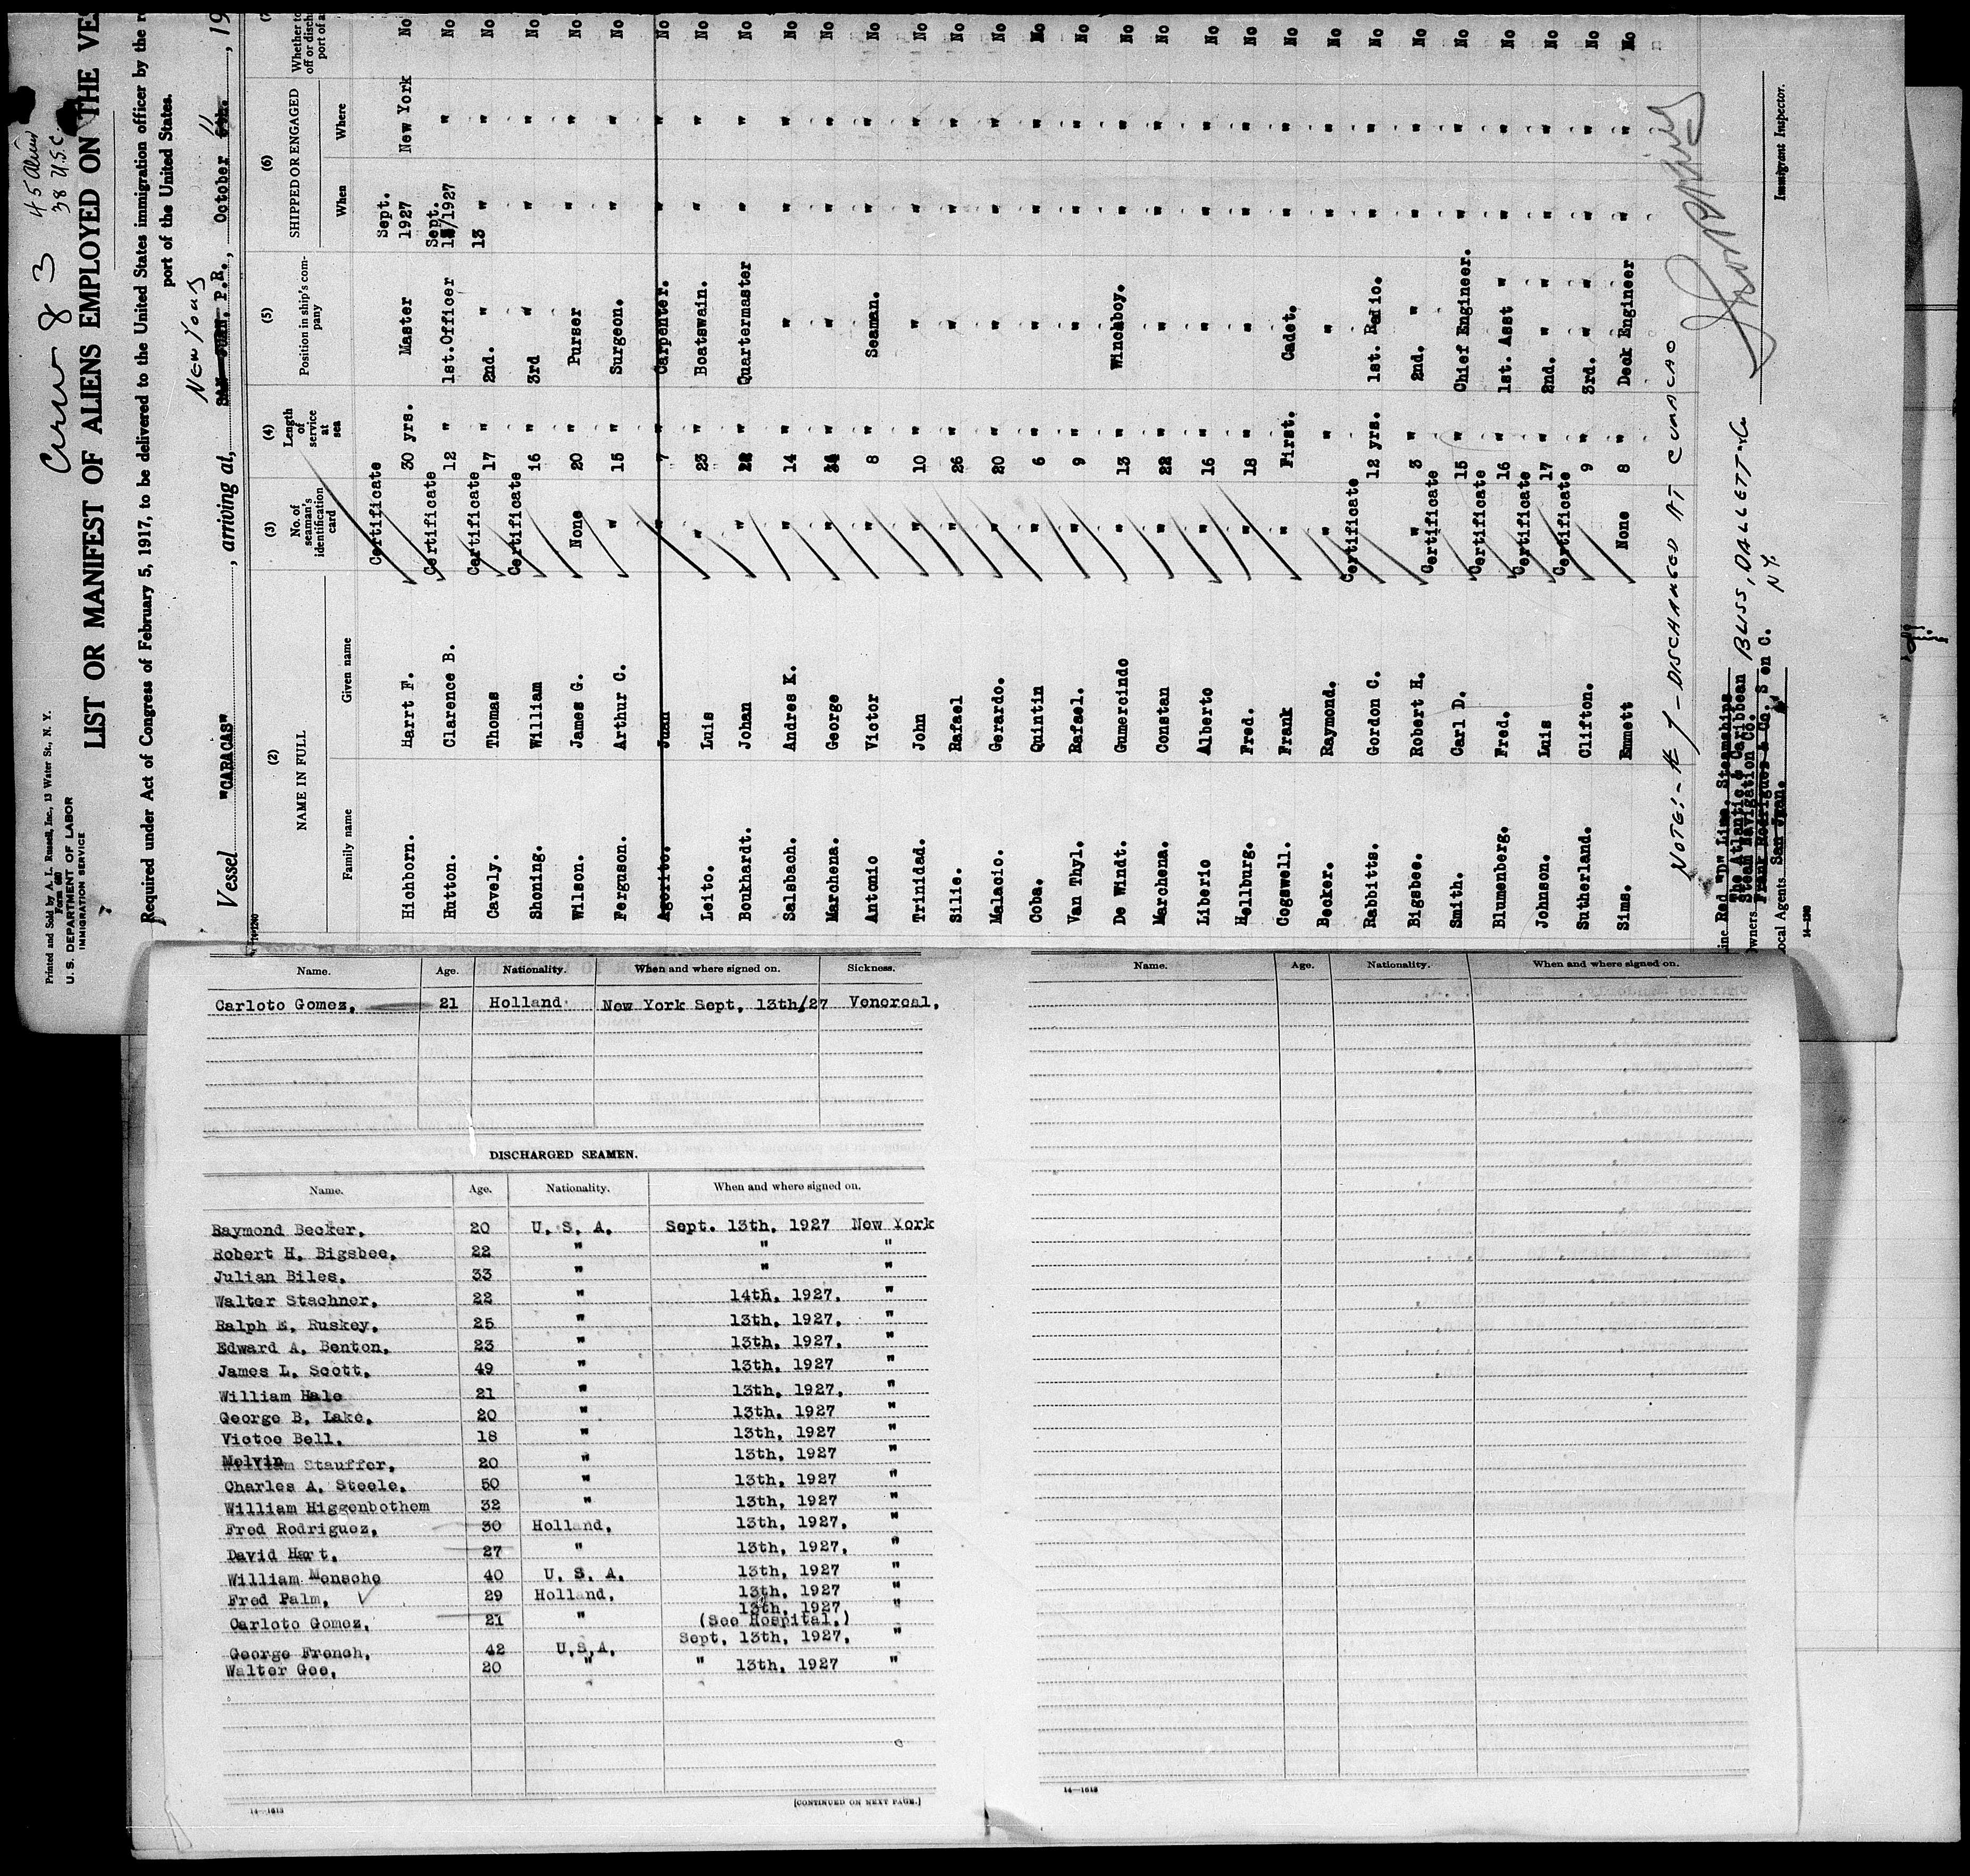 Crew 83
45 Alien
38 U.S.C.
Printed and Sold by A. L. Russell, Inc., 13 Water St., N. Y.
Form 680
U. S. DEPARTMENT OF LABOR
IMMIGRATION SERVICE
LIST OR MANIFEST OF ALIENS EMPLOYED ON THE VES
Required under Act of Congress of February 5, 1917, to be delivered to the United States immigration officer by the r
port of the United States.
New York
Vessel "CARACAS", arriving at, SAN JUAN, P.R., October 11, 19
14-1240
(2) (3) (4) (5) (6)
NAME IN FULL No. of seaman's identification card Length of service at sea Position in ship's company SHIPPED OR ENGAGED Whether to
off or disch
port of a
Family name Given name When Where
Hichborn. Hart F. Certificate 30 yrs. Master Sept. 1927 New York No
Hutton. Clarence B. Certificate 12 " 1st.Officer Sept. 13/1927 " No
Cavely. Thomas Certificate 17 " 2nd. " 13 " " No
Shoning. William Certificate 16 " 3rd " " " No
Wilson. James G. None 20 " Purser " " No
Ferguson. Arthur C. " 15 " Surgeon. " " No
Agorito. Juan " 7 " Carpenter. " " No
Leito. Luis " 23 " Boatswain. " " No
Boukhardt. Johan " 22 " Quartermaster " " No
Salsbach. Andres K. " 14 " " " " No
Marchena. George " " " " " No
Antonio Victor " 8 " Seaman. " " No
Trinidad. John " 10 " " " " No
Silie. Rafael " 26 " " " " No
Malacic. Gerardo. " 20 " " " " No
Coba. Quintin " 6 " " " " No
Van Thyl. Rafael. " 9 " " " " No
De Windt. Gumercindo " 13 " Winchboy. " " No
Marchena. Constan " 22 " " " " No
Liberic Alberto " 16 " " " " No
Hellburg. Fred. " 18 " " " " No
Cogswell. Frank " First. Cadet. " " No
Becker. Raymond. " " " " " No
Rabbitts. Gordon C. Certificate 12 yrs. 1st. Radio. " " No
Bigsbee. Robert H. " 3 " 2nd. " " " No
Smith. Carl D. Certificate 15 " Chief Engineer. " " No
Blumenberg. Fred. Certificate 16 " 1st. Asst " " " No
Johnson. Luis Certificate 17 " 2nd. " " " No
Sutherland. Clifton. Certificate 9 " 3rd. " " " No
Sims. Emmett None 8 " Deck Engineer " " No
NOTE:- # 7 - DISCHARGED AT CURACAO
ine Red "D" Line. Steamships
The Atlantic & Caribbean
wners Steam Navigation Co. BLISS, DALLETT & Co
Frank Rodriguez & Co. S en C. N.Y.
ocal Agents San Juan.
Immigrant Inspector.
14-1240
Name. Age. Nationality. When and where signed on. Sickness.
Carloto Gomez, 21 Holland New York Sept, 13th/27 Venereal,
DISCHARGED SEAMEN.
Name. Age. Nationality. When and where signed on.
Raymond Becker, 20 U. S. A. Sept. 13th, 1927 New York
Robert H. Bigsbee, 22 " " "
Julian Biles, 33 " " "
Walter Stachner, 22 " 14th, 1927, "
Ralph E. Ruskey, 25 " 13th, 1927, "
Edward A. Benton, 23 " 13th, 1927, "
James L. Scott, 49 " 13th, 1927 "
William Hale 21 " 13th, 1927, "
George B. Lake, 20 " 13th, 1927 "
Victoe Bell, 18 " 13th, 1927 "
Melvin Stauffer, 20 " 13th, 1927 "
Charles A. Steele, 50 " 13th, 1927 "
William Higgenbothem 32 " 13th, 1927 "
Fred Rodriguez, 30 Holland, 13th, 1927, "
David Hart, 27 " 13th, 1927, "
William Mensche 40 U. S. A. 13th, 1927 "
Fred Palm, 29 Holland, 13th, 1927 "
Carloto Gomez, 21 " 13th, 1927, (See Hospital,) "
George French, 42 U.S.A. Sept, 13th, 1927, "
Walter Gee, 20 " " 13th, 1927 "
14—1613
[CONTINUED ON NEXT PAGE.]
Name. Age. Nationality. When and where signed on.
14—1613